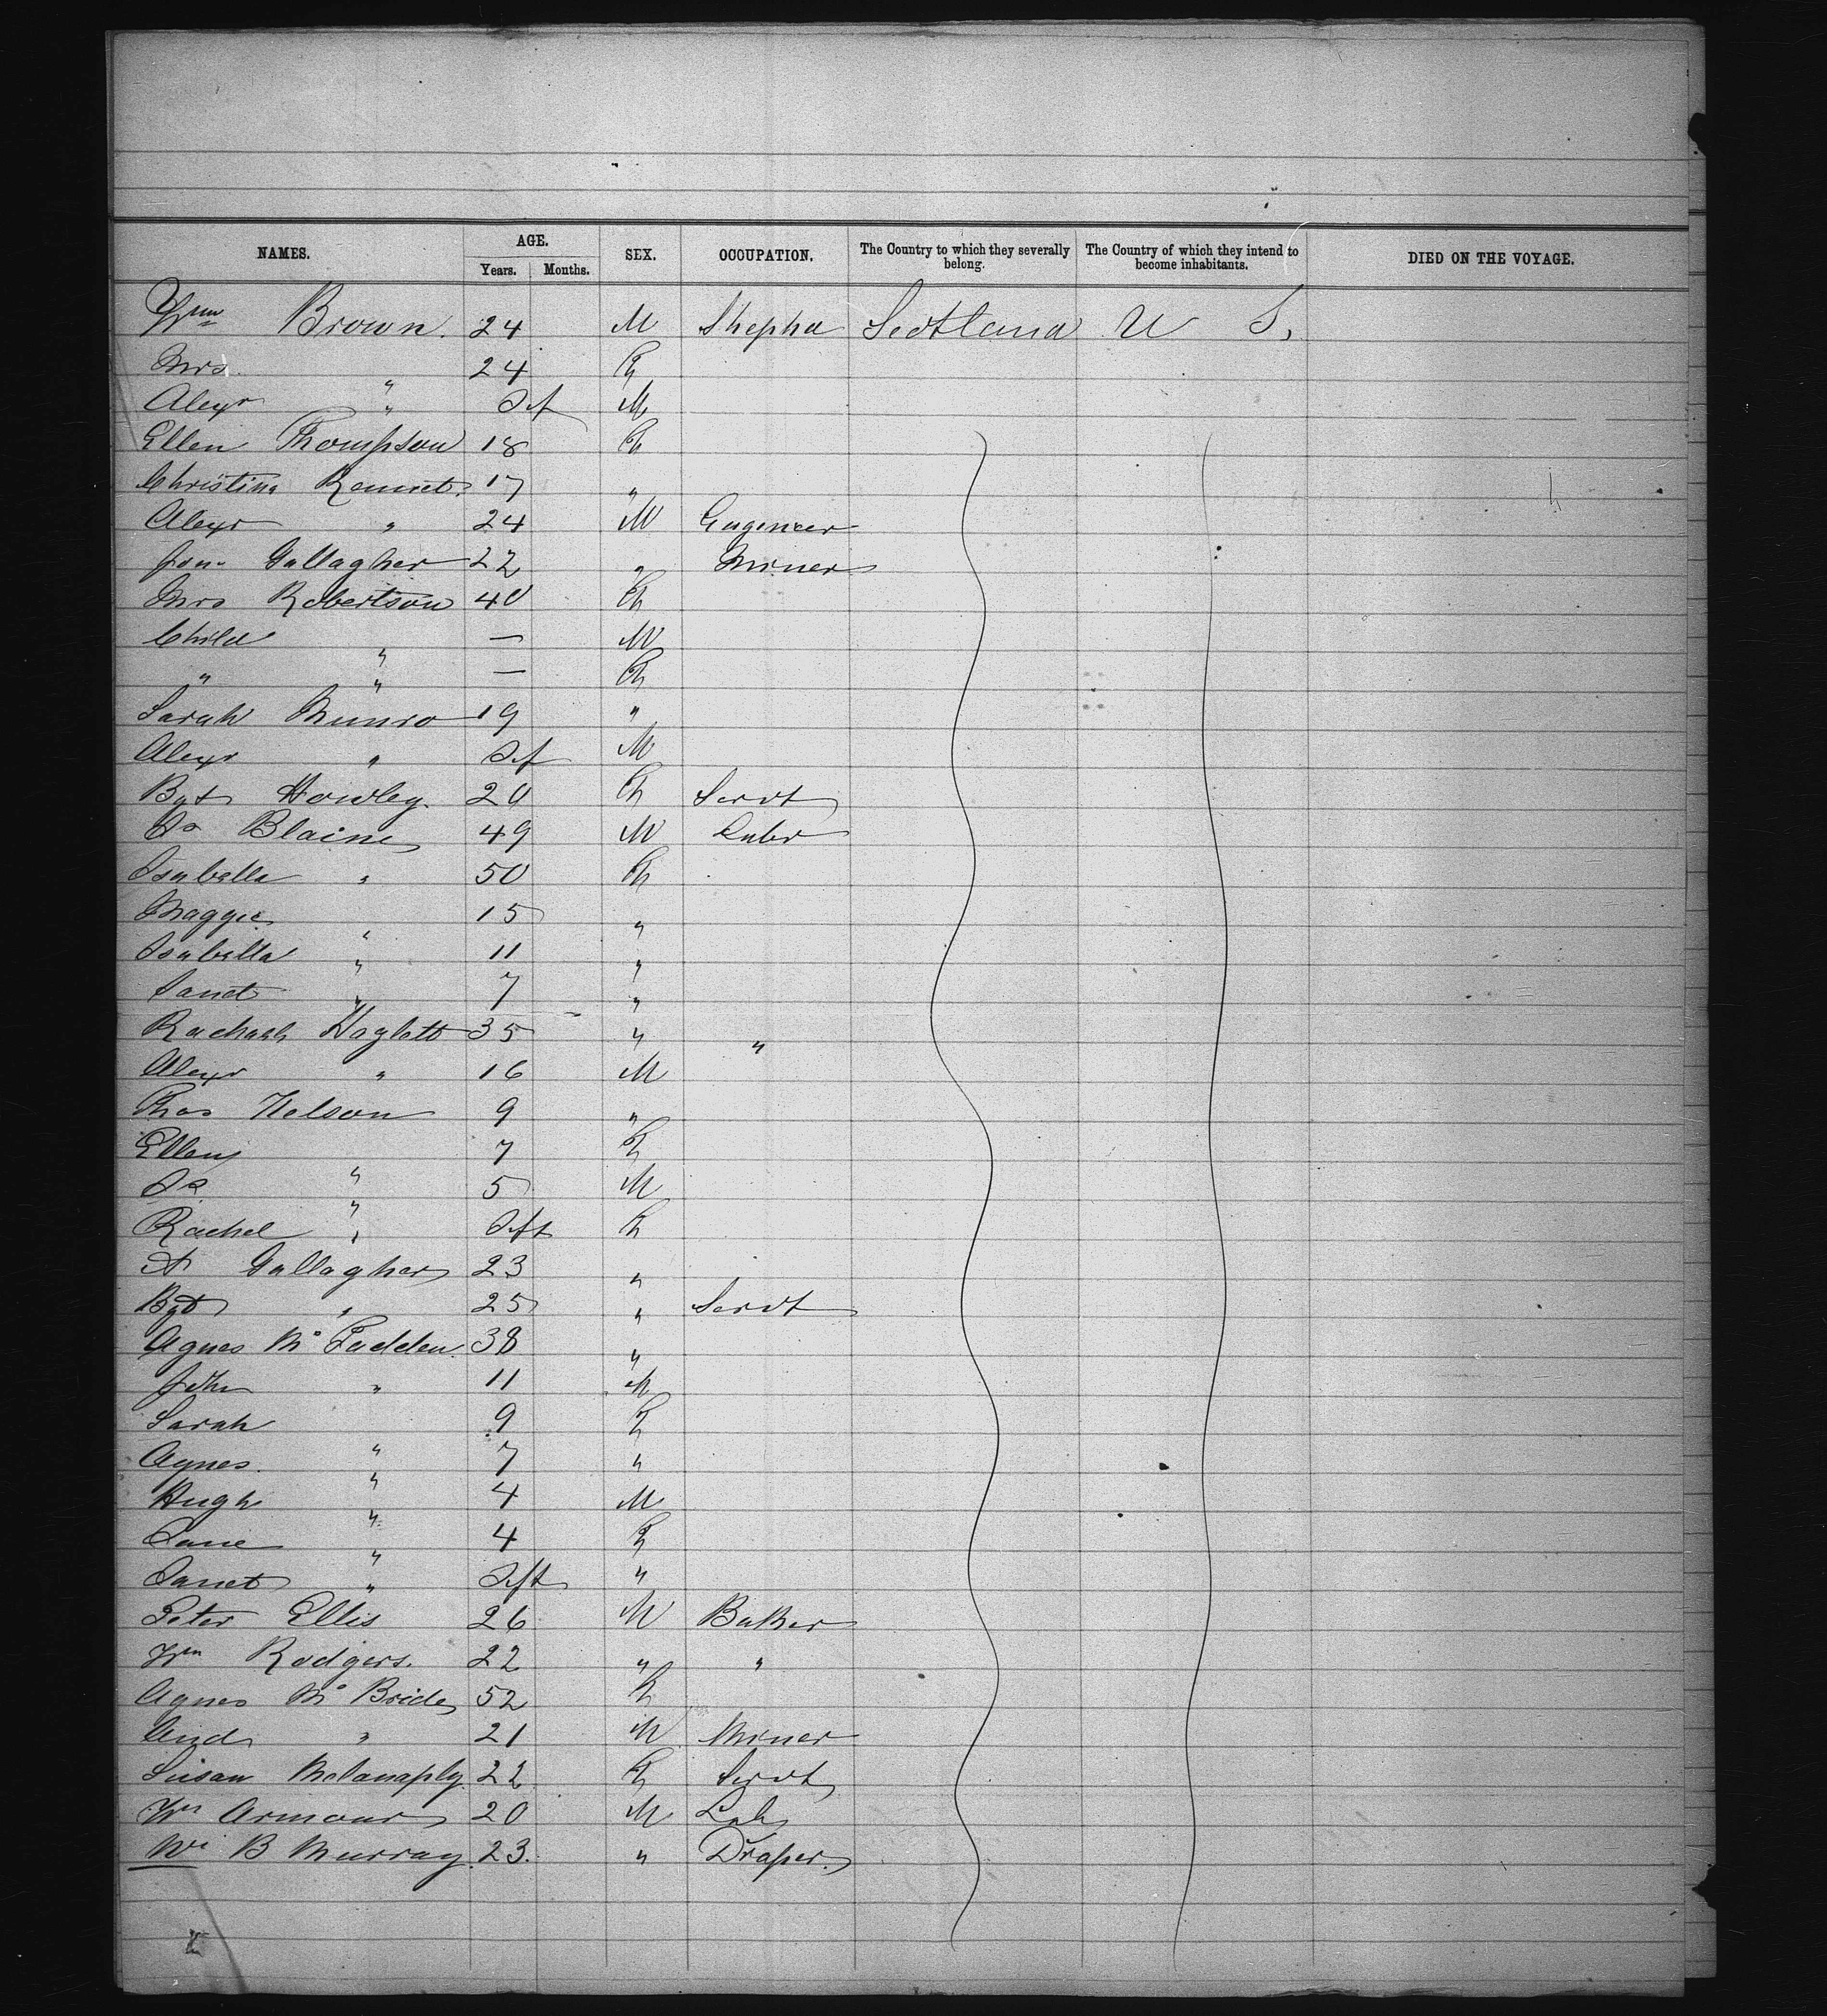 NAMES. AGE. SEX. OCCUPATION. The Country to which they severally belong. The Country of which they intend to become inhabitants. DIED ON THE VOYAGE.
Years. Months.
Wm Brown. 24 M Shephd Scotland U S.
Mrs " 24 F
Alexr " Inf M
Ellen Thompson 18 F
Christina Rennet 17 "
Alexr " 24 M Engineer
Jon. Gallagher 22 " Miner
Mrs Robertson 40 F
Child " — M
" " — F
Sarah Munro 19 "
Alexr " Inf M
Bgt Howley 20 F Servt
Js Blaine 49 M
Isabella " 50 F
Maggie " 15 "
Isabella " 11 "
Janet " 7 "
Rachael 35 " "
Alexr " 16 M
Thos Nelson 9 "
Ellen " 7 F
Js " 5 M
Rachel " Inft F
A Gallagher 23 "
Bgt " 25 " Servt
Agnes Mc Fadden 38 "
John " 11 M
Sarah " 9 F
Agnes " 7 "
Hugh " 4 M
Jane " 4 F
Janet " Inft "
Peter Ellis 26 M Baker
Wm Rodgers. 22 " "
Agnes Mc Bride 52 F
And " 21 M Miner
Susan Mclanaphy 22 F Servt
Wm Armour 20 M Lab
Wm B Murray 23. " Draper.